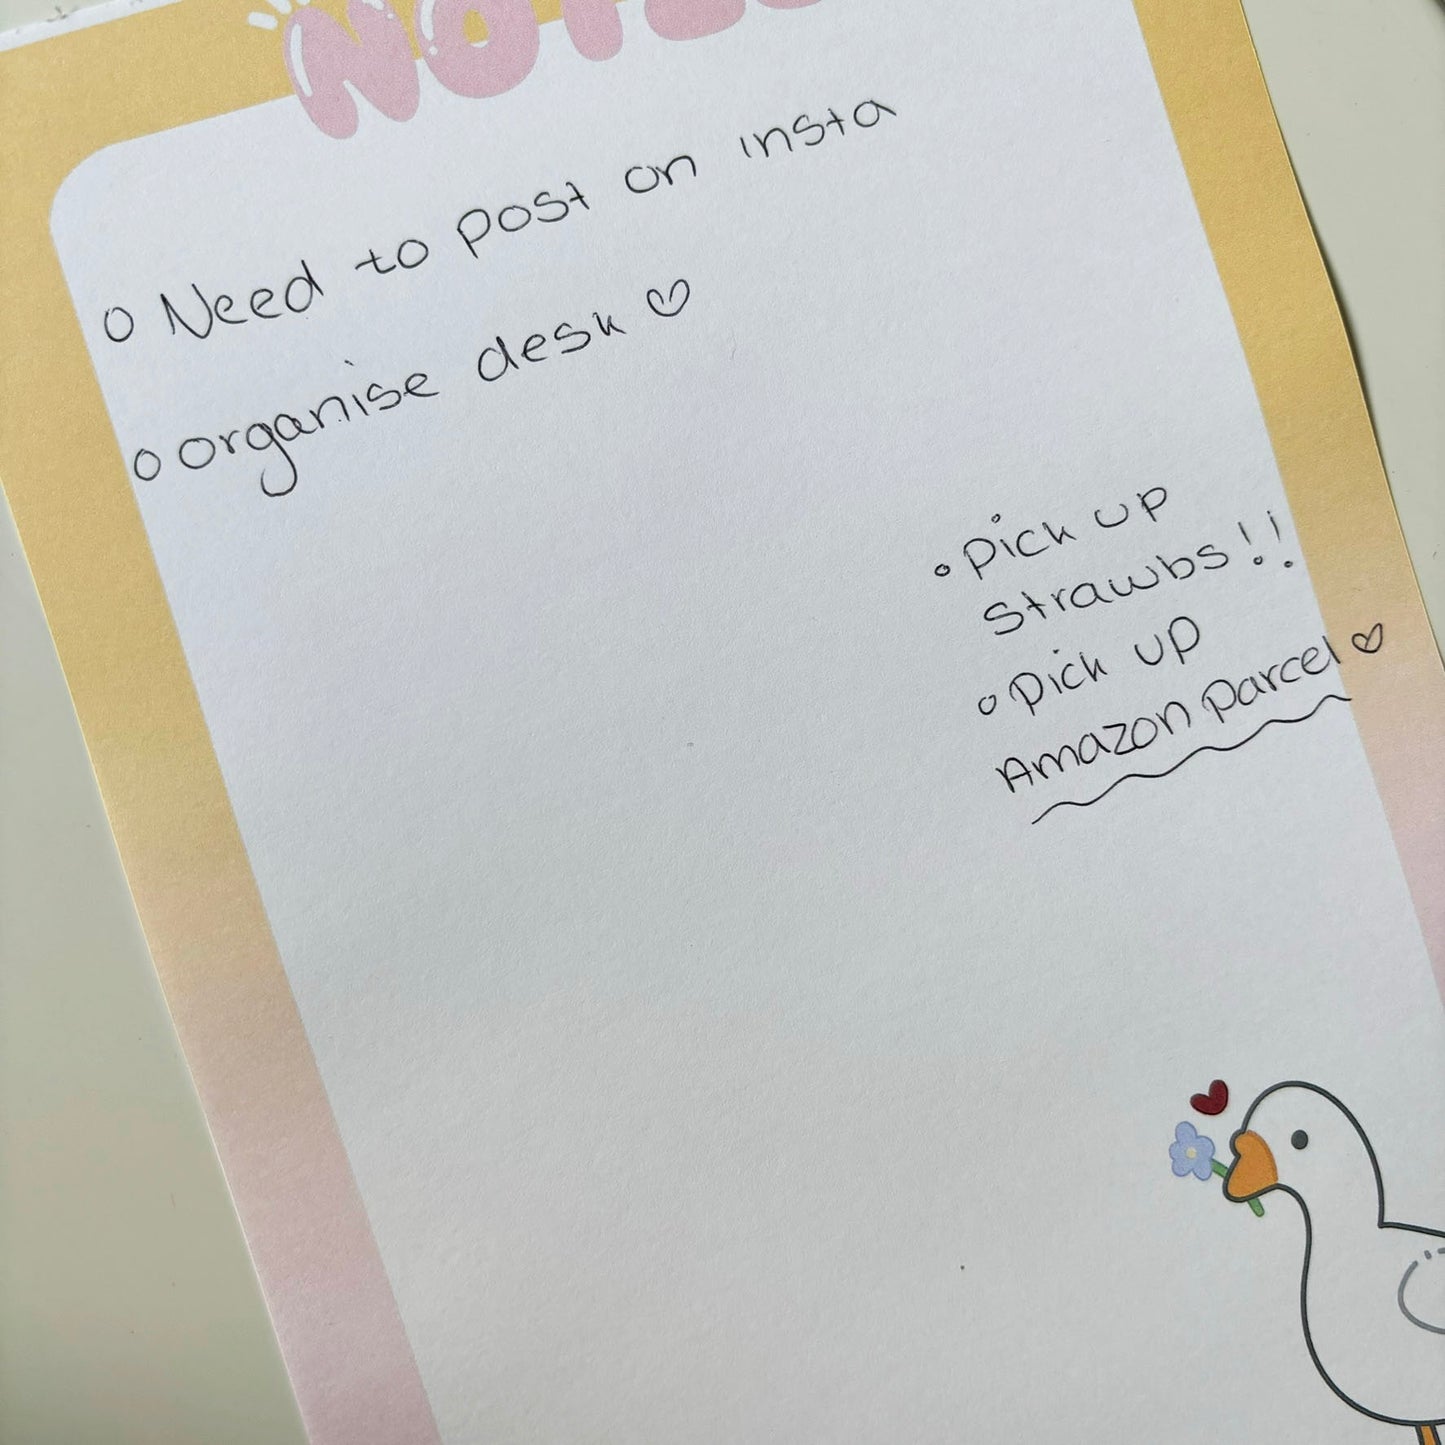 NOTES
o Need to post on insta
o organise desk ♡
• Pick up
strawbs!!
o Pick up
Amazon parcel ♡